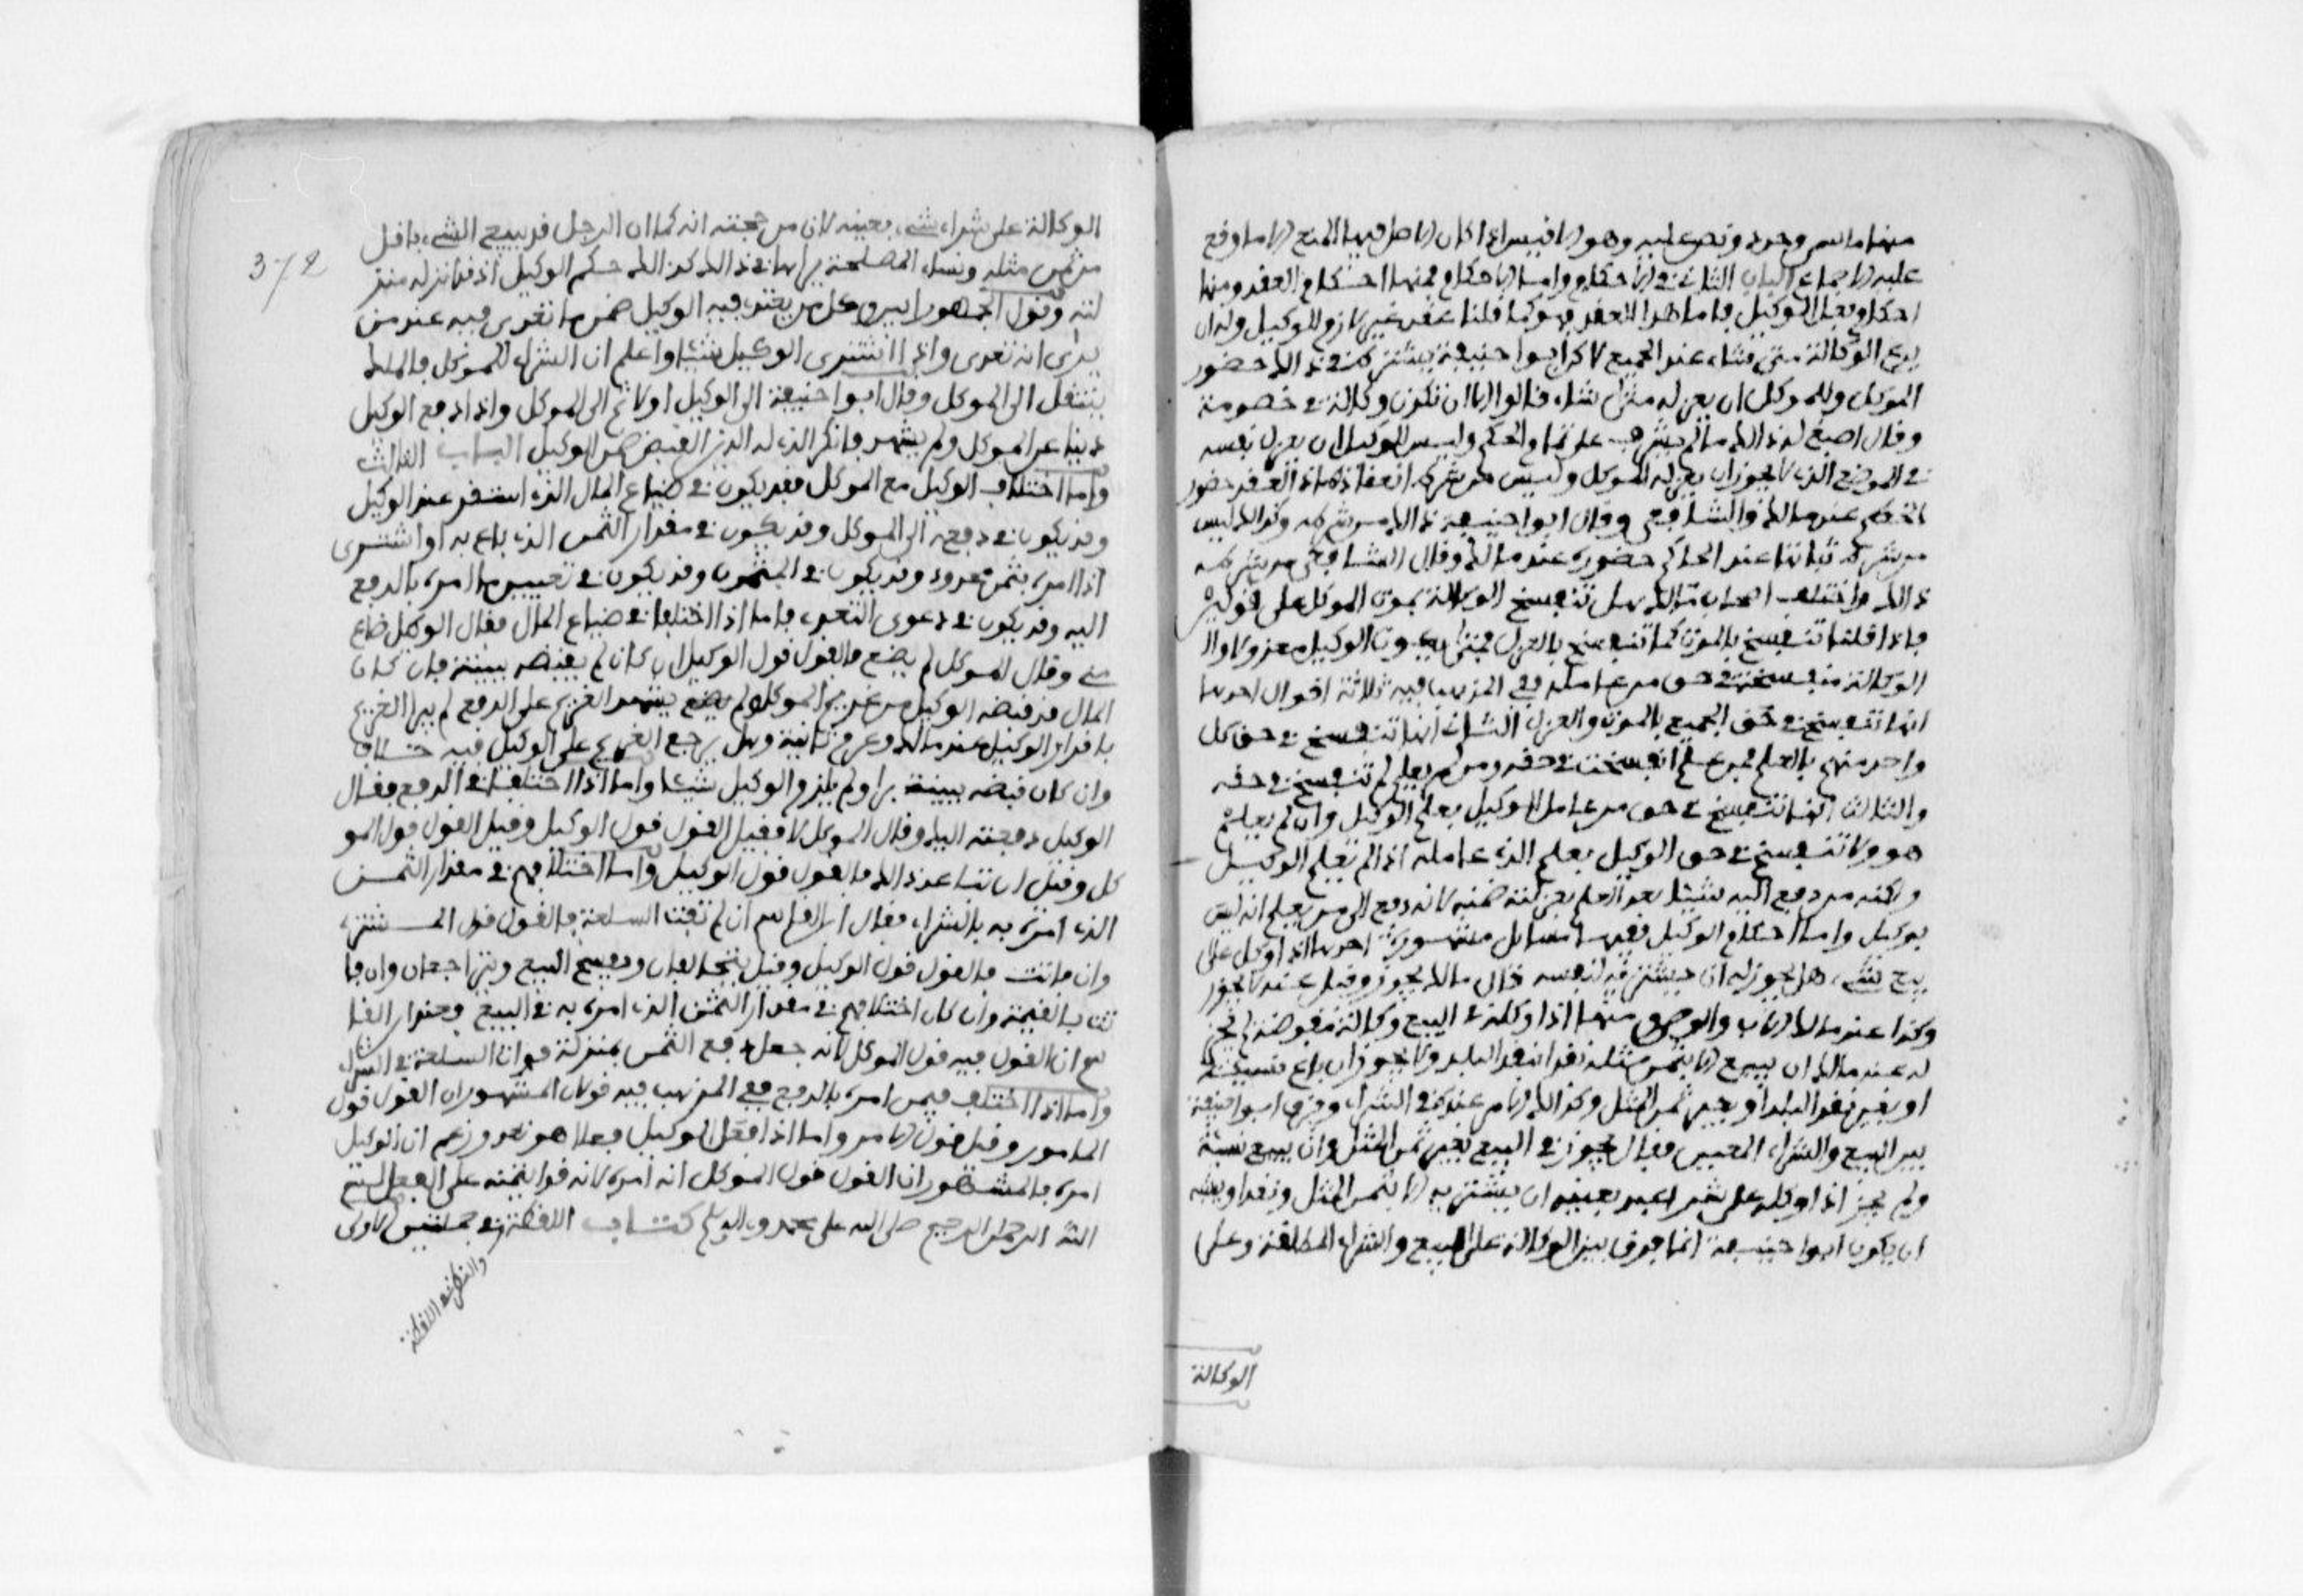 منها ما سمى وحدد ونص عليه وهو الاقيس اذا كان الاصل فيها المنع الا ما وقع
عليه الاجماع الباب الثاني في الاحكام واما الاحكام فمنها احكام العقد ومنها
احكام فعل الوكيل فاما هذا العقد فهو كما قلنا عقد غير لازم للوكيل وله ان
يدع الوكالة متى شاء عند الجميع لاكن ابوا حنيفة يشترط في ذالك حضور
الموكل وللموكل ان يعزله متى شاء قالوا الا ان تكون وكالة في خصومة
وقال اصبغ له ذالك ما لم يشرف على تمام الحكم وليس للوكيل ان يعزل نفسه
في الموضع الذي لا يجوز ان يعزله الموكل وليس من شرط انعقاد هذا العقد حضور
الخصم عند مالك والشافعي وقال ابوا حنيفة ذالك من شرطه وكذالك ليس
من شرط اثباتها عند الحاكم حضوره عند مالك وقال الشافعي من شرطه
ذالك واختلف اصحاب مالك هل تنفسخ الوكالة بموت الموكل على قولين
فاذا قلنا تنفسخ بالموت كما تنفسخ بالعزل فمتى يكون الوكيل معزولا وال
الوكالة منفسخة في حق من عامله في المذهب فيه ثلاثة اقوال احدها
انها تنفسخ في حق الجميع بالموت والعزل الثاني انها تنفسخ في حق كل
واحد منهم بالعلم فمن علم انفسخت في حقه ومن لم يعلم لم تنفسخ في حقه
والثالث انها تنفسخ في حق من عامل الوكيل بعلم الوكيل وان لم يعلم
هو ولا تنفسخ في حق الوكيل بعلم الذي عامله اذا لم يعلم الوكيل
ولكنه من دفع اليه شيئا بعد العلم بعزلته ضمنه لانه دفع الى من يعلم انه ليس
بوكيل واما احكام الوكيل ففيها مسائل مشهورة احدها اذا وكل على
بيع شيء هل يجوز له ان يشتريه لنفسه قال مالك يجوز وقد قيل عنه لا يجوز
وكذا عند مالك الاب والوصي ومنها اذا وكله في البيع وكالة مفوضة لم يجز
له عند مالك ان يبيع الا بثمن مثله نقدا بنقد البلد ولا يجوز ان باع نسيئة
او بغير نقد البلد او بغير ثمن المثل وكذالك الامر عنده في الشراء وفرق ابوا حنيفة
بين البيع والشراء المعين فقال يجوز في البيع بغير ثمن المثل وان يبيع نسئة
ولم يجز اذا وكله على شراء عبد بعينه ان يشتريه الا بثمن المثل ونقدا ويشبه
ان يكون ابوا حنيفة انما فرق بين الوكالة على البيع والشراء المطلقة وعلى
الوكالة
372
الوكالة على شراء شيء بعينه لان من حجته انه كما ان الرجل قد يبيع الشيء باقل
من ثمن مثله ونساء لمصلحة يراها في ذالك كذالك حكم الوكيل اذ قد انزله منز
لته وقول الجمهور ابين وكل من يعتدي فيه الوكيل ضمن ما تعدى فيه عند من
يرى انه تعدى واذا اشترى الوكيل شيئا واعلم ان الشراء للموكل فالملك
ينتقل الى الموكل وقال ابوا حنيفة الى الوكيل اولا ثم الى الموكل واذا دفع الوكيل
دينا عن الموكل ولم يشهد فانكر الذي له الدين القبض ضمن الوكيل الباب الثالث
واما اختلاف الوكيل مع الموكل فقد يكون في ضياع المال الذي استقر عند الوكيل
وقد يكون في دفعه الى الموكل وقد يكون في مقدار الثمن الذي باع به او اشترى
اذا امره بثمن محدود وقد يكون في المثمون وقد يكون في تعيين من امره بالدفع
اليه وقد يكون في دعوى التعدي فاما اذا اختلفا في ضياع المال فقال الوكيل ضاع
مني وقال الموكل لم يضع فالقول قول الوكيل ان كان لم يقبضه ببينة فان كان
المال قد قبضه الوكيل من غريم الموكل ولم يشهد الغريم على الدفع لم يبرا الغريم
باقرار الوكيل عند مالك وغرم ثانية وهل يرجع الغريم على الوكيل فيه خلاف
وان كان قبضه ببينة برا ولم يلزم الوكيل شيئا واما اذا اختلفا في الدفع فقال
الوكيل دفعته اليك وقال الموكل لا فقيل القول قول الوكيل وقيل القول قول المو
كل وقيل ان تباعد ذالك فالقول قول الوكيل واما اختلافهم في مقدار الثمن
الذي امره به بالشراء فقال ابن القاسم ان لم تفت السلعة فالقول قول المشتري
وان فاتت فالقول قول الوكيل وقيل يتحالفان ويفسخ البيع ويتراجعان وان فا
تت بالقيمة وان كان اختلافهم في مقدار الثمن الذي امره به في البيع فعند ابن القا
سم ان القول فيه قول الموكل لانه جعل دفع الثمن بمنزلة فوات السلعة في الشراء
واما اذا اختلف فيمن امره بالدفع ففي المذهب فيه قولان المشهور ان القول قول
المامور وقيل قول الامر واما اذا فعل الوكيل فعلا هو تعد وزعم ان الموكل
امره فالمشهور ان القول قول الموكل انه لم يامره لانه قد ائتمنه على الفعل بسم
الله الرحمن الرحيم صلى الله على محمد وءاله وسلم كتاب اللقطة في جملتين الاولى
والنظر في اللقطة